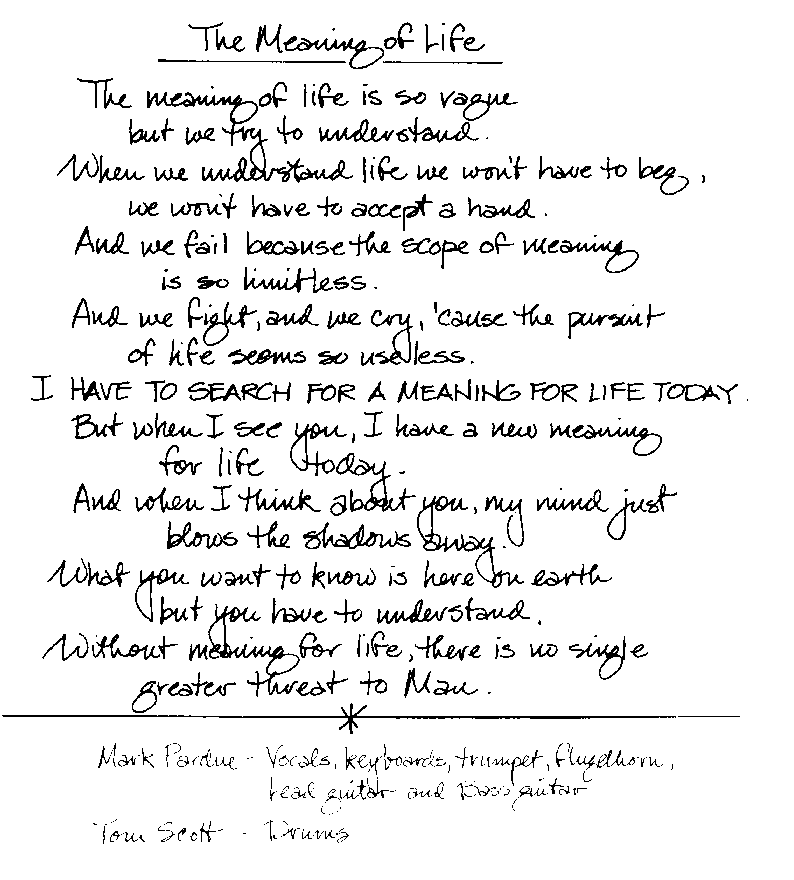 The Meaning of Life
The meaning of life is so vague
but we try to understand.
When we understand life we won't have to beg,
we won't have to accept a hand.
And we fail because the scope of meaning
is so limitless.
And we fight, and we cry, 'cause the pursuit
of life seems so useless.
I HAVE TO SEARCH FOR A MEANING FOR LIFE TODAY.
But when I see you, I have a new meaning
for life today.
And when I think about you, my mind just
blows the shadows away.
What you want to know is here on earth
but you have to understand.
Without meaning for life, there is no single
greater threat to Man.
Mark Pardue - Vocals, keyboards, trumpet, flugelhorn,
Lead guitar and Bass guitar
Tom Scott - Drums